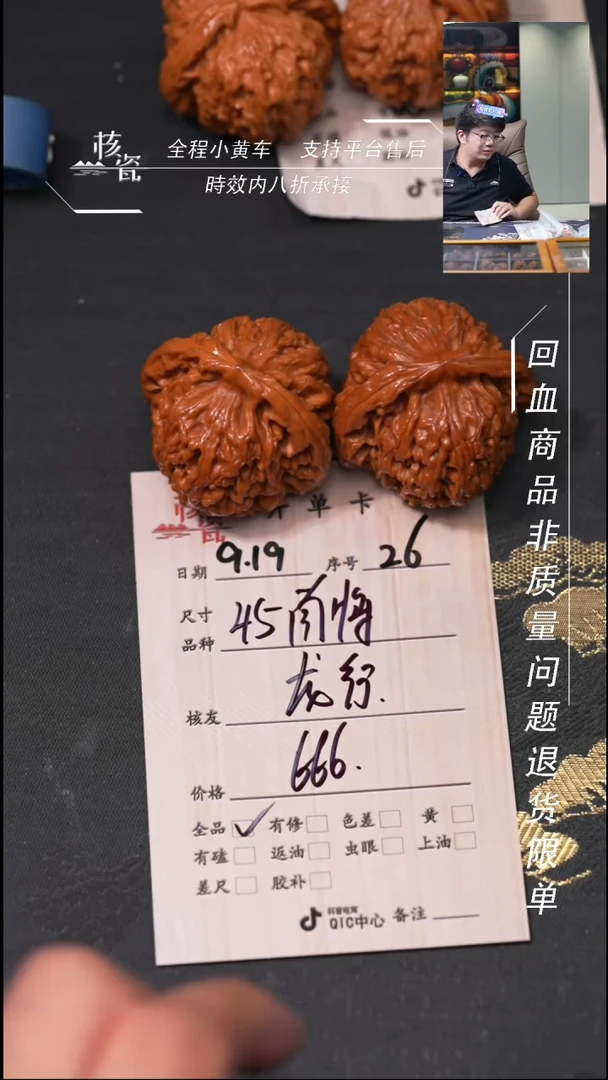 核瓷
全程小黄车 支持平台售后
時效内八折承接
回血商品非质量问题退货限单
开单卡
日期 9.19 序号 26
尺寸
品种 45南将
核友 龙行.
价格 666.
全品 ✓ 有修 色差 黄
有磕 返油 虫眼 上油
差尺 胶补
抖音电商
QIC中心 备注